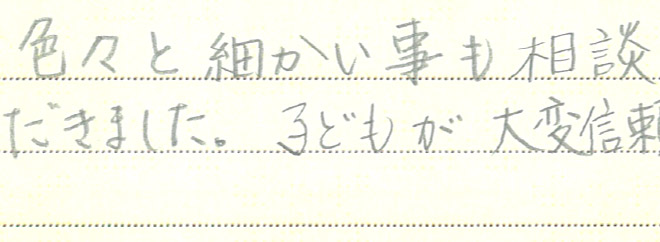 色々と細かい事も相談
だきました。子どもが大変信頼